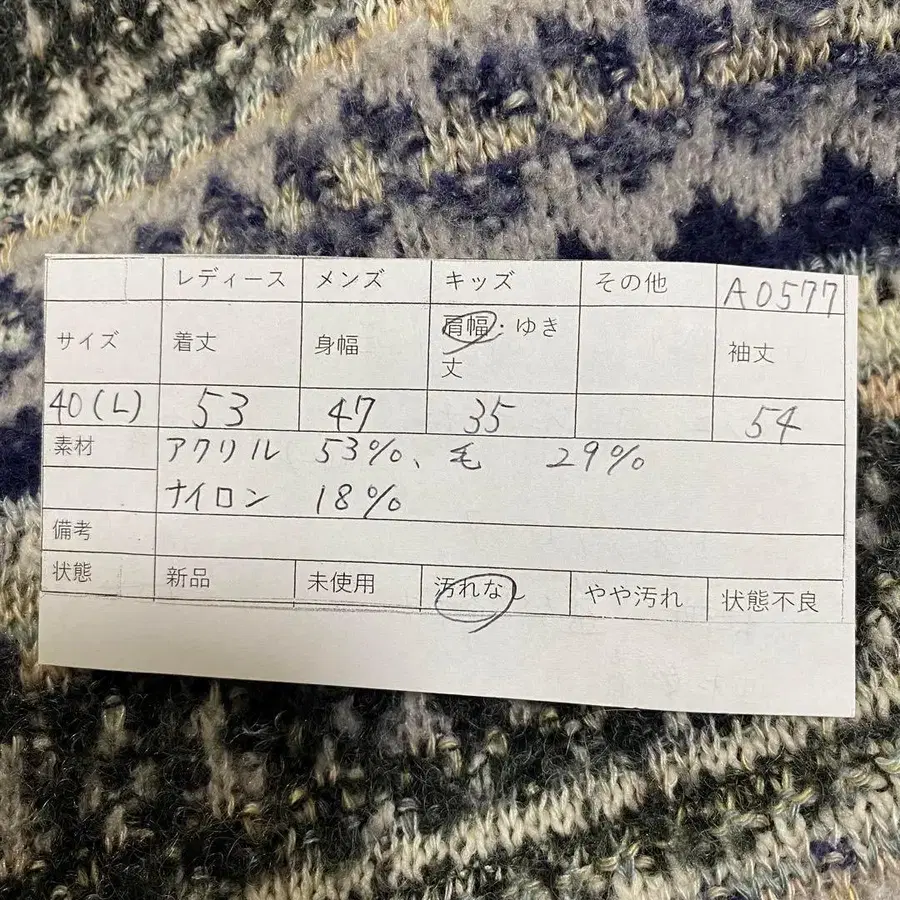 レディース メンズ キッズ その他 A0577
サイズ 着丈 身幅 肩幅・ゆき丈 袖丈
40(L) 53 47 35 54
素材 アクリル 53%、毛 29%
ナイロン 18%
備考
状態 新品 未使用 汚れなし やや汚れ 状態不良